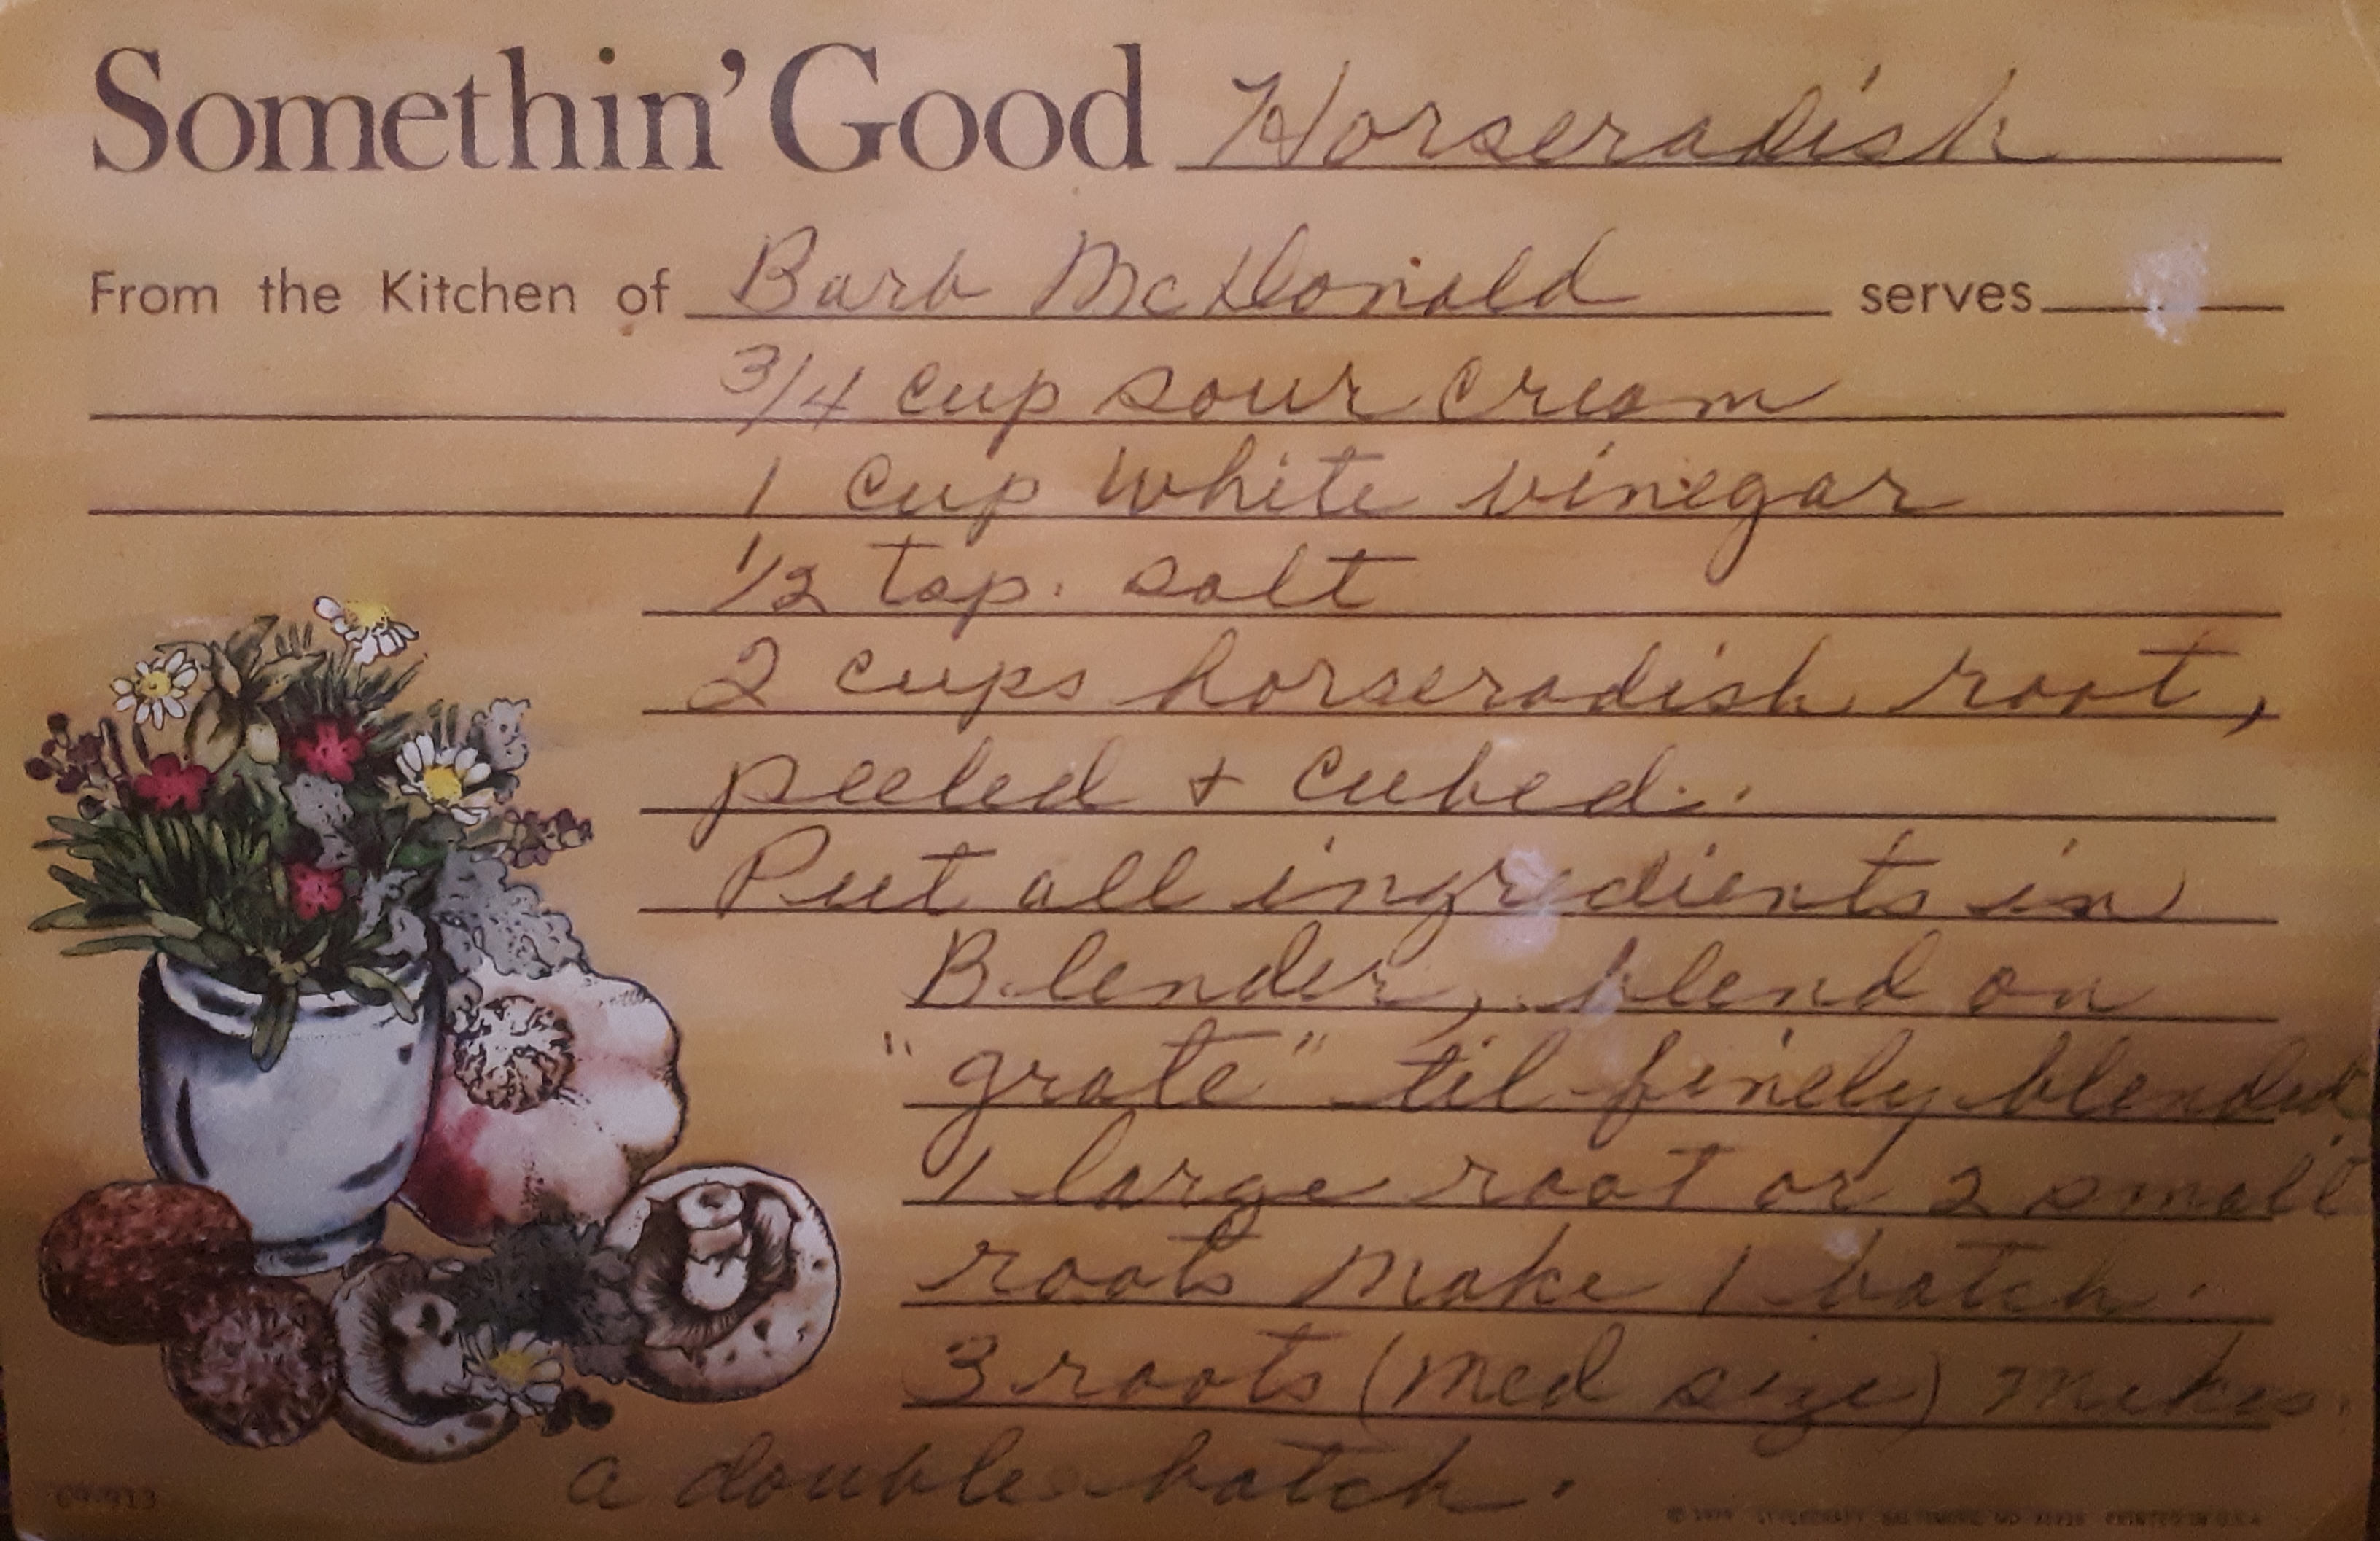 Somethin' Good Horseradish
From the Kitchen of Barb McDonald serves
3/4 cup sour cream
1 cup white vinegar
1/2 tsp. salt
2 cups horseradish root,
peeled + cubed.
Put all ingredients in
Blender, blend on
"grate" til finely blended.
1 large root or 2 small
roots make 1 batch.
3 roots (med size) makes
a double batch.
PRINTED IN U.S.A.